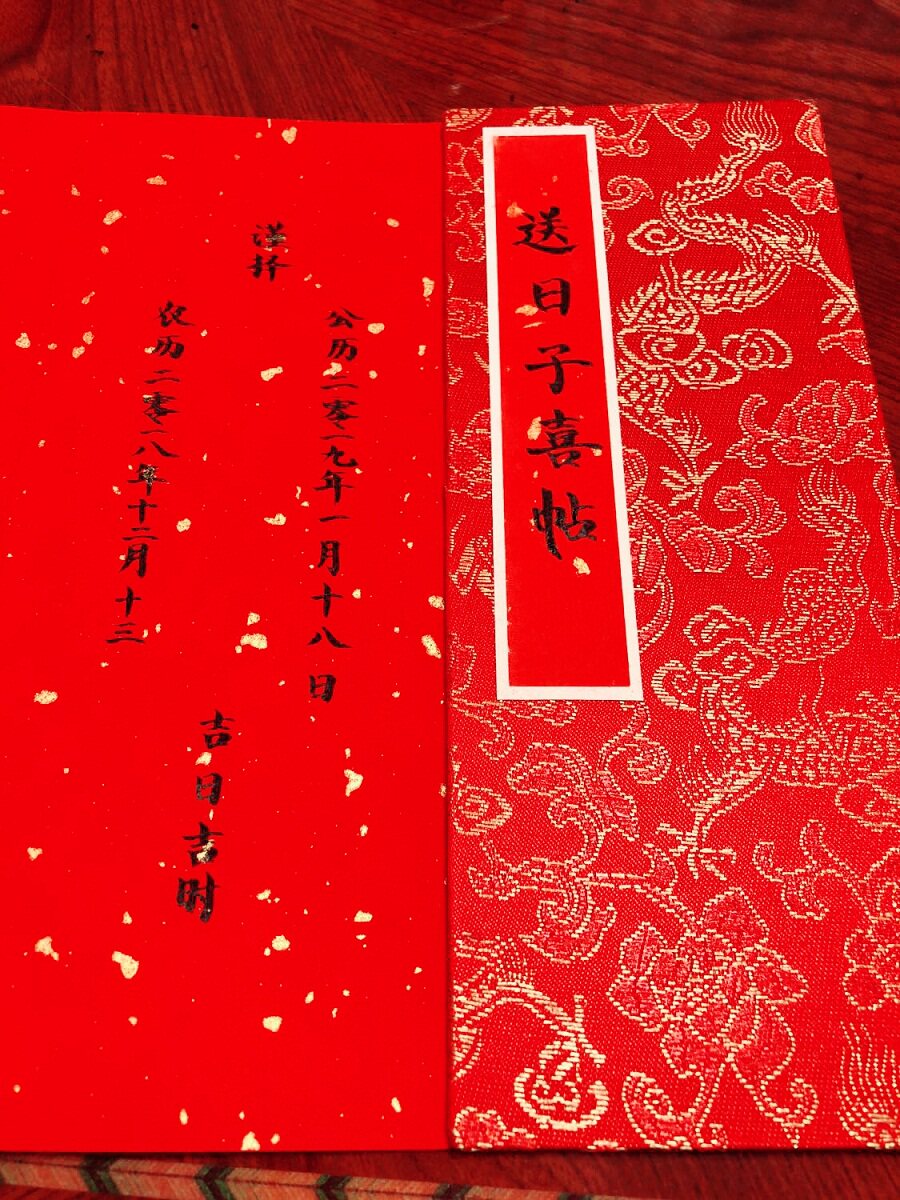 送日子喜帖
谨择
公历二零一九年一月十八日
农历二零一八年十二月十三
吉日吉时